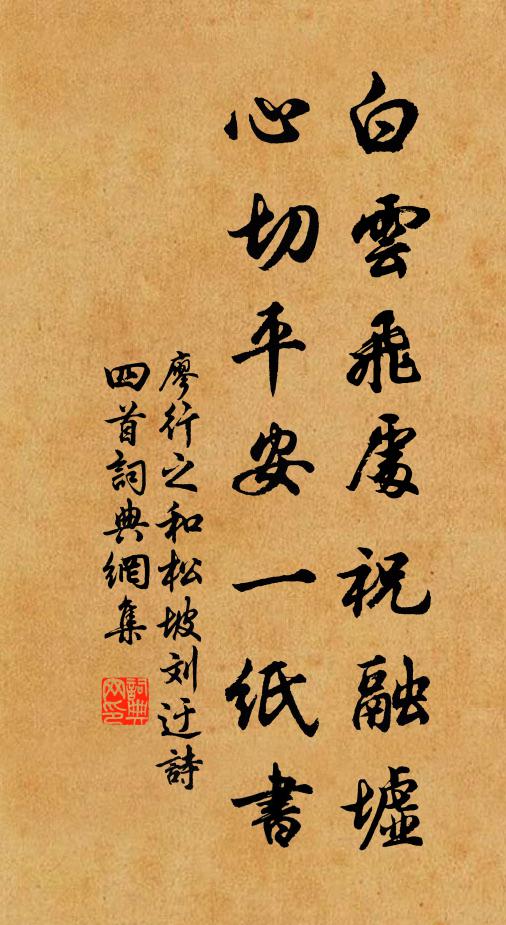 白雲飛處祝融墟
心切平安一紙書
廖行之和松坡刘迂詩
四首詞典網集
詞典网印